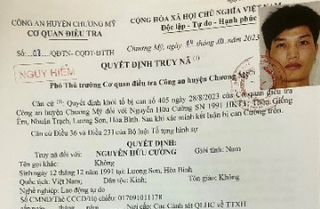 CÔNG AN HUYỆN CHƯƠNG MỸ
CỘNG HÒA XÃ HỘI CHỦ NGHĨA VIỆT
CƠ QUAN ĐIỀU TRA
Độc lập - Tự do - Hạnh phúc
Chương Mỹ, ngày 10 2023
NGUY HIỂM
QUYẾT ĐỊNH TRUY NÃ
Phó Thủ trưởng Cơ quan điều tra Công an huyện Chương Mỹ
Căn cứ Quyết định khởi tố bị can số 405 ngày 28/8/2023 của Cơ quan điều tra
Công an huyện Chương Mỹ đối với Nguyễn Hữu Cường SN 1991 HKTT: Thôn Giếng
Nhuận Trạch, Lương Sơn, Hòa Bình. Sau khi xác minh kết luận bị can Cường trốn.
Căn cứ Điều 36 và Điều 231 của Bộ luật Tố tụng hình sự
QUYẾT ĐỊNH:
Truy nã đối với: NGUYỄN HỮU CƯỜNG Giới tính: Nam
Tên gọi khác: Không
Sinh ngày 12 tháng 12 năm 1991 tại: Lương Sơn, Hòa Bình
Quốc tịch: Việt Nam; Dân tộc: Kinh; Tôn giáo: Không
Nghề nghiệp: Lao động tự do
Số CMND/Thẻ CCCD/Hộ chiếu: 017091011178
Nơi cấp: Cục Cảnh sát QLHC về TTXH